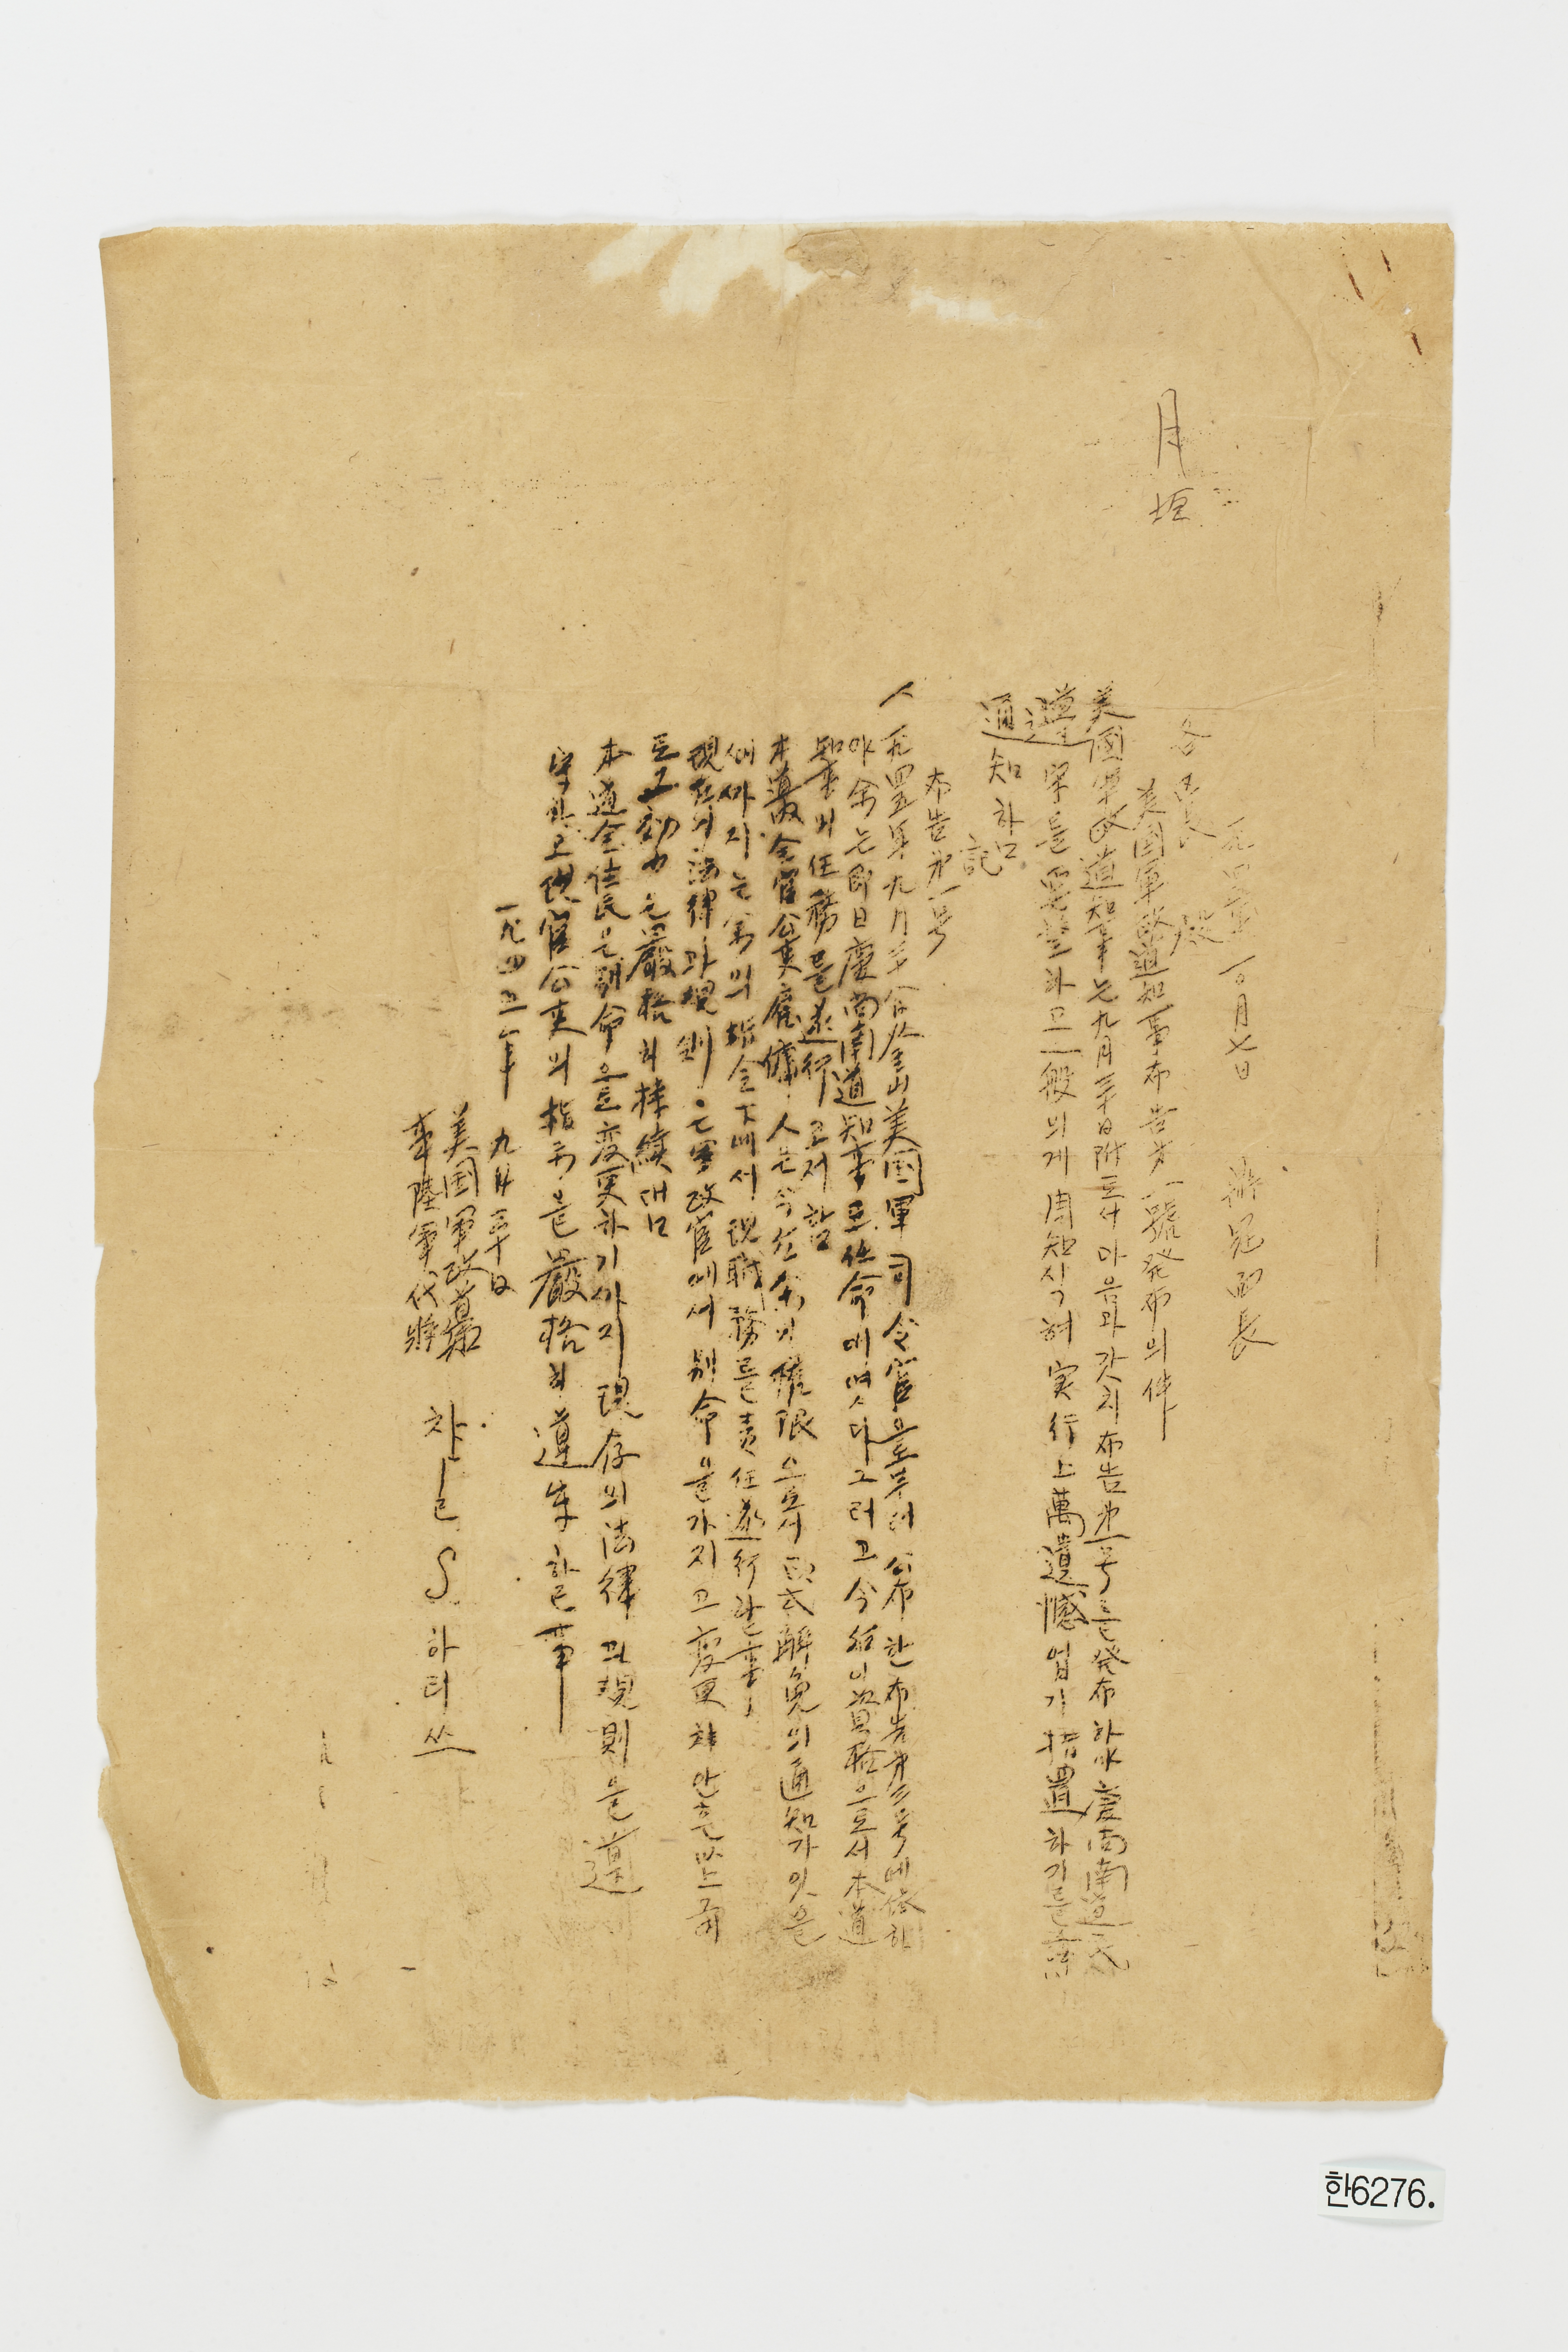 月垣
一九四五年 一0月七日 面長
各區長 殿
美國軍政道知事布告第一號発布의件
美國軍政道知事는九月三十日附로서마음과갓치布告第一号를発布하야慶尚南道民
遵守를要望하고一般의게周知시그혀実行上萬遺憾업기措置하기를
通知하ㅁ
記
布告第一号
一九四五年九月三十日釜山美国軍司令官으로부터公布한布告第三号에依하
야余는即日慶尚南道知事로任命에여스다그러고今後이資格으로서本道
知事의任務를遂行고저함
本道政全官公吏雇傭人은今後余의權限으로서正式解免의通知가잇을
때까지는余의指令下에서現職務를責任遂行할事
現在의法律과規則은軍政官에서別命을가지고変更치안흔以上
로고効力은嚴格히持續대ㅁ
本道全住民은別命으로変更하기까지現存의法律과規則을遵
守하고現官公吏의指示을嚴格히遵守할事
一九四五年 九月三十日
美国軍政
陸軍代將 차-ㄹ S 하티쓰
한6276.